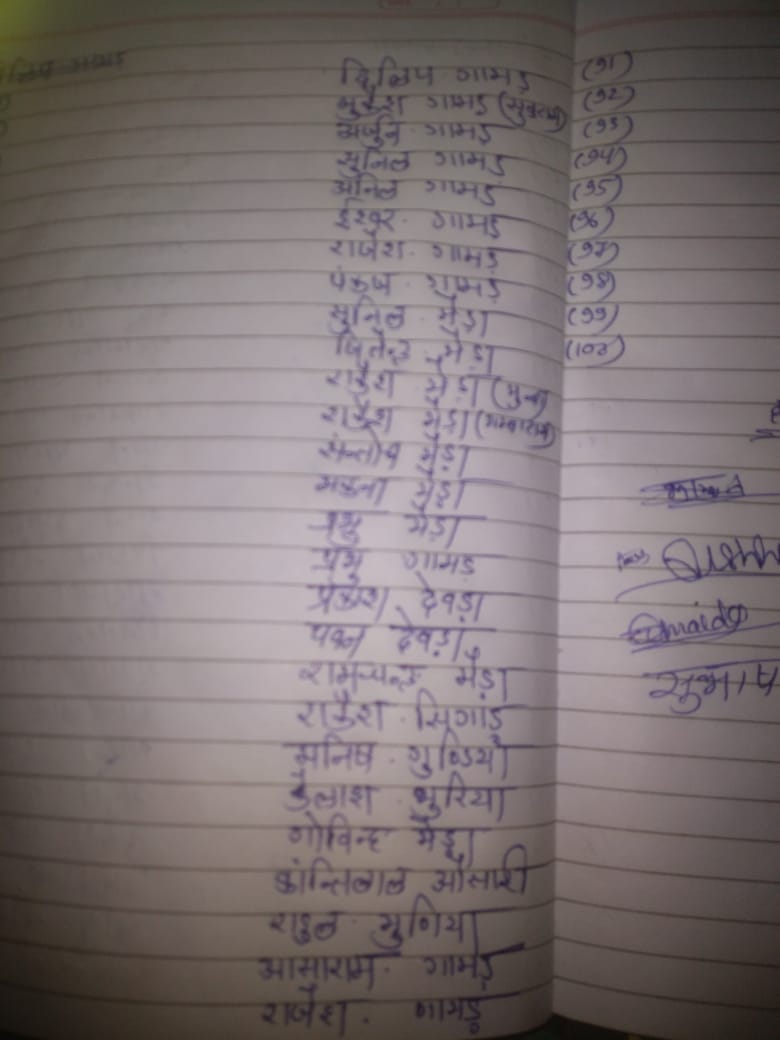 दिलिप गामड़ (91)
मुकेश गामड़ (92)
अर्जुन गामड़ (93)
सुनिल गामड़ (94)
अनिल गामड़ (95)
ईश्वर गामड़ (96)
राजेश गामड़ (97)
पंकज गामड़ (98)
सुनिल मेड़ा (99)
जितेन्द्र मेड़ा (100)
राकेश मेड़ा (मुन्ना)
राकेश मेड़ा
सन्तोष मेड़ा
मेड़ा
प्रभु मेड़ा
प्रभु गामड़
प्रकाश देवड़ा
पवन देवड़ा
रामचन्द्र मेड़ा
राकेश सिंगाड़
मनिष गुण्डिया
कैलाश भुरिया
गोविन्द मेड़ा
कान्तिलाल ओसारी
राहुल मुणिया
आसाराम गामड़
राजेश गामड़